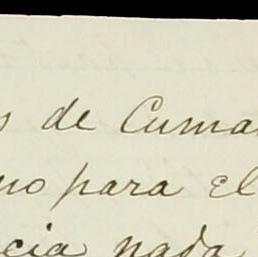 s de Cuma
no para el
cia nada